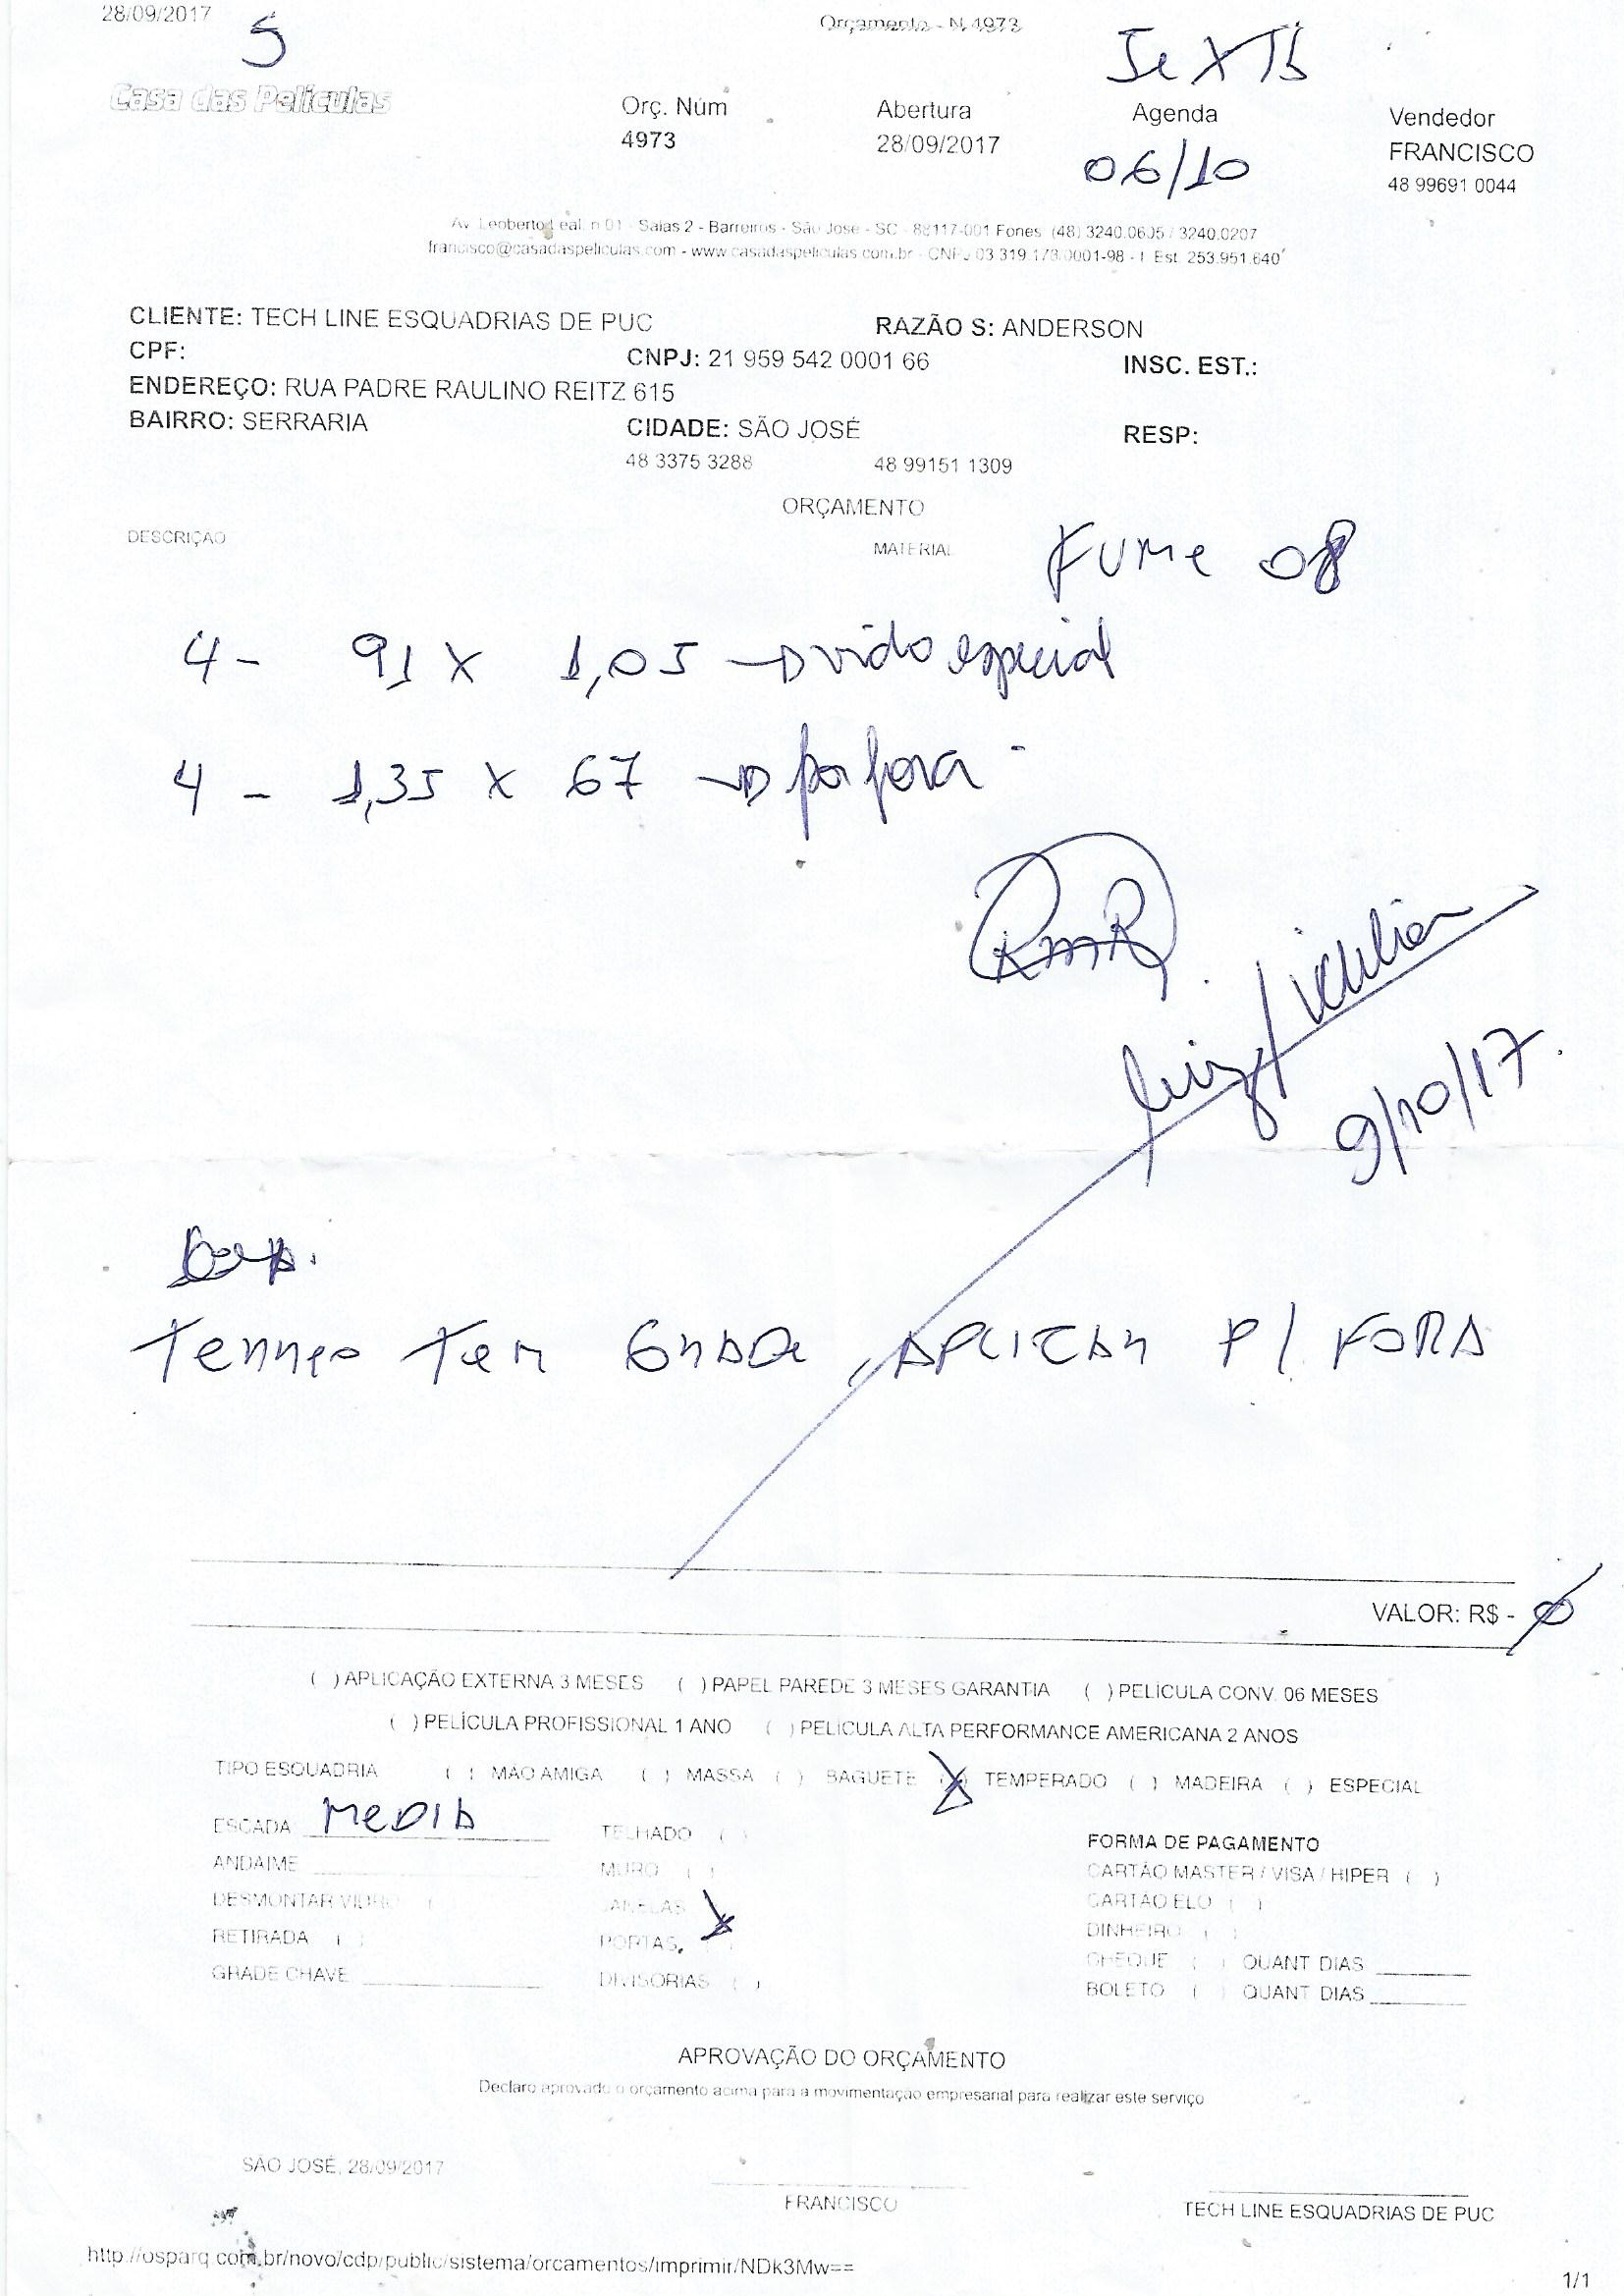 28/09/2017
Orçamento - N.4973
5
SexTA
Casa das Películas
Orç. Núm
Abertura
Agenda
Vendedor
4973
28/09/2017
06/10
FRANCISCO
48 99691 0044
Av. Leoberto Leal, n 01 - Salas 2 - Barreiros - São José - SC - 88117-001 Fones: (48) 3240.0605 / 3240.0207
francisco@casadaspeliculas.com - www.casadaspeliculas.com.br - CNPJ 03.319.173/0001-98 - I. Est. 253.951.640
CLIENTE: TECH LINE ESQUADRIAS DE PUC
RAZÃO S: ANDERSON
CPF:
CNPJ: 21 959 542 0001 66
INSC. EST.:
ENDEREÇO: RUA PADRE RAULINO REITZ 615
BAIRRO: SERRARIA
CIDADE: SÃO JOSÉ
RESP:
48 3375 3288
48 99151 1309
ORÇAMENTO
DESCRIÇÃO
MATERIAL
FUMe 08
4 - 91 x 1,05 → vidro especial
4 - 1,35 x 67 → por fora
9/10/17.
Tem GRADe, APLICAR P/ FORA
VALOR: R$ - 0
( ) APLICAÇÃO EXTERNA 3 MESES ( ) PAPEL PAREDE 3 MESES GARANTIA ( ) PELÍCULA CONV. 06 MESES
( ) PELÍCULA PROFISSIONAL 1 ANO ( ) PELÍCULA ALTA PERFORMANCE AMERICANA 2 ANOS
TIPO ESQUADRIA ( ) MAO AMIGA ( ) MASSA ( ) BAGUETE (X) TEMPERADO ( ) MADEIRA ( ) ESPECIAL
ESCADA MeDIA
TELHADO ( )
FORMA DE PAGAMENTO
ANDAIME
MURO ( )
CARTÃO MASTER / VISA / HIPER ( )
DESMONTAR VIDRO ( )
JANELAS
CARTÃO ELO ( )
RETIRADA ( )
PORTAS
DINHEIRO ( )
GRADE CHAVE
DIVISORIAS ( )
CHEQUE ( ) QUANT DIAS
BOLETO ( ) QUANT DIAS
APROVAÇÃO DO ORÇAMENTO
Declaro aprovado o orçamento acima para a movimentação empresarial para realizar este serviço
SÃO JOSÉ, 28/09/2017
FRANCISCO
TECH LINE ESQUADRIAS DE PUC
http://osparq.com.br/novo/cdp/public/sistema/orcamentos/imprimir/NDk3Mw==
1/1